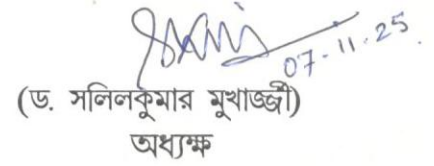 07-11-25.
(ড. সলিলকুমার মুখার্জ্জী)
অধ্যক্ষ